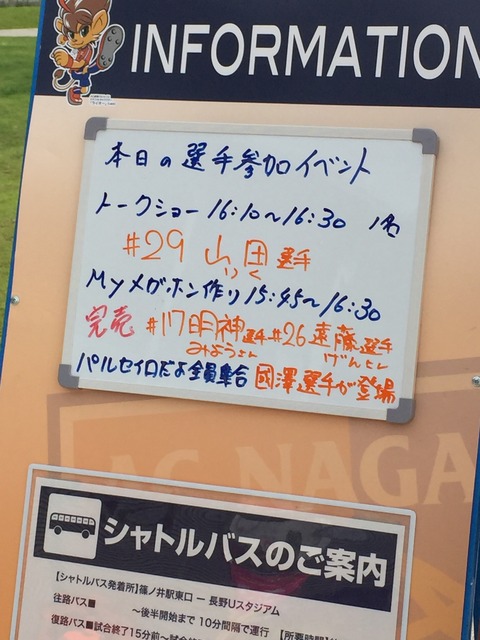 INFORMATION
本日の選手参加イベント
トークショー 16:10〜16:30 1名
#29 山田選手
Myメガホン作り 15:45〜16:30
完売 #17明神選手 #26遠藤選手
みょうじん げんとし
パルセイロだよ全員集合 國澤選手が登場
AC NAGA
シャトルバスのご案内
【シャトルバス発着所】篠ノ井駅東口 ー 長野Uスタジアム
往路バス■ 〜後半開始まで 10分間隔で運行 【所要時間】
復路バス■試合終了15分前〜試合